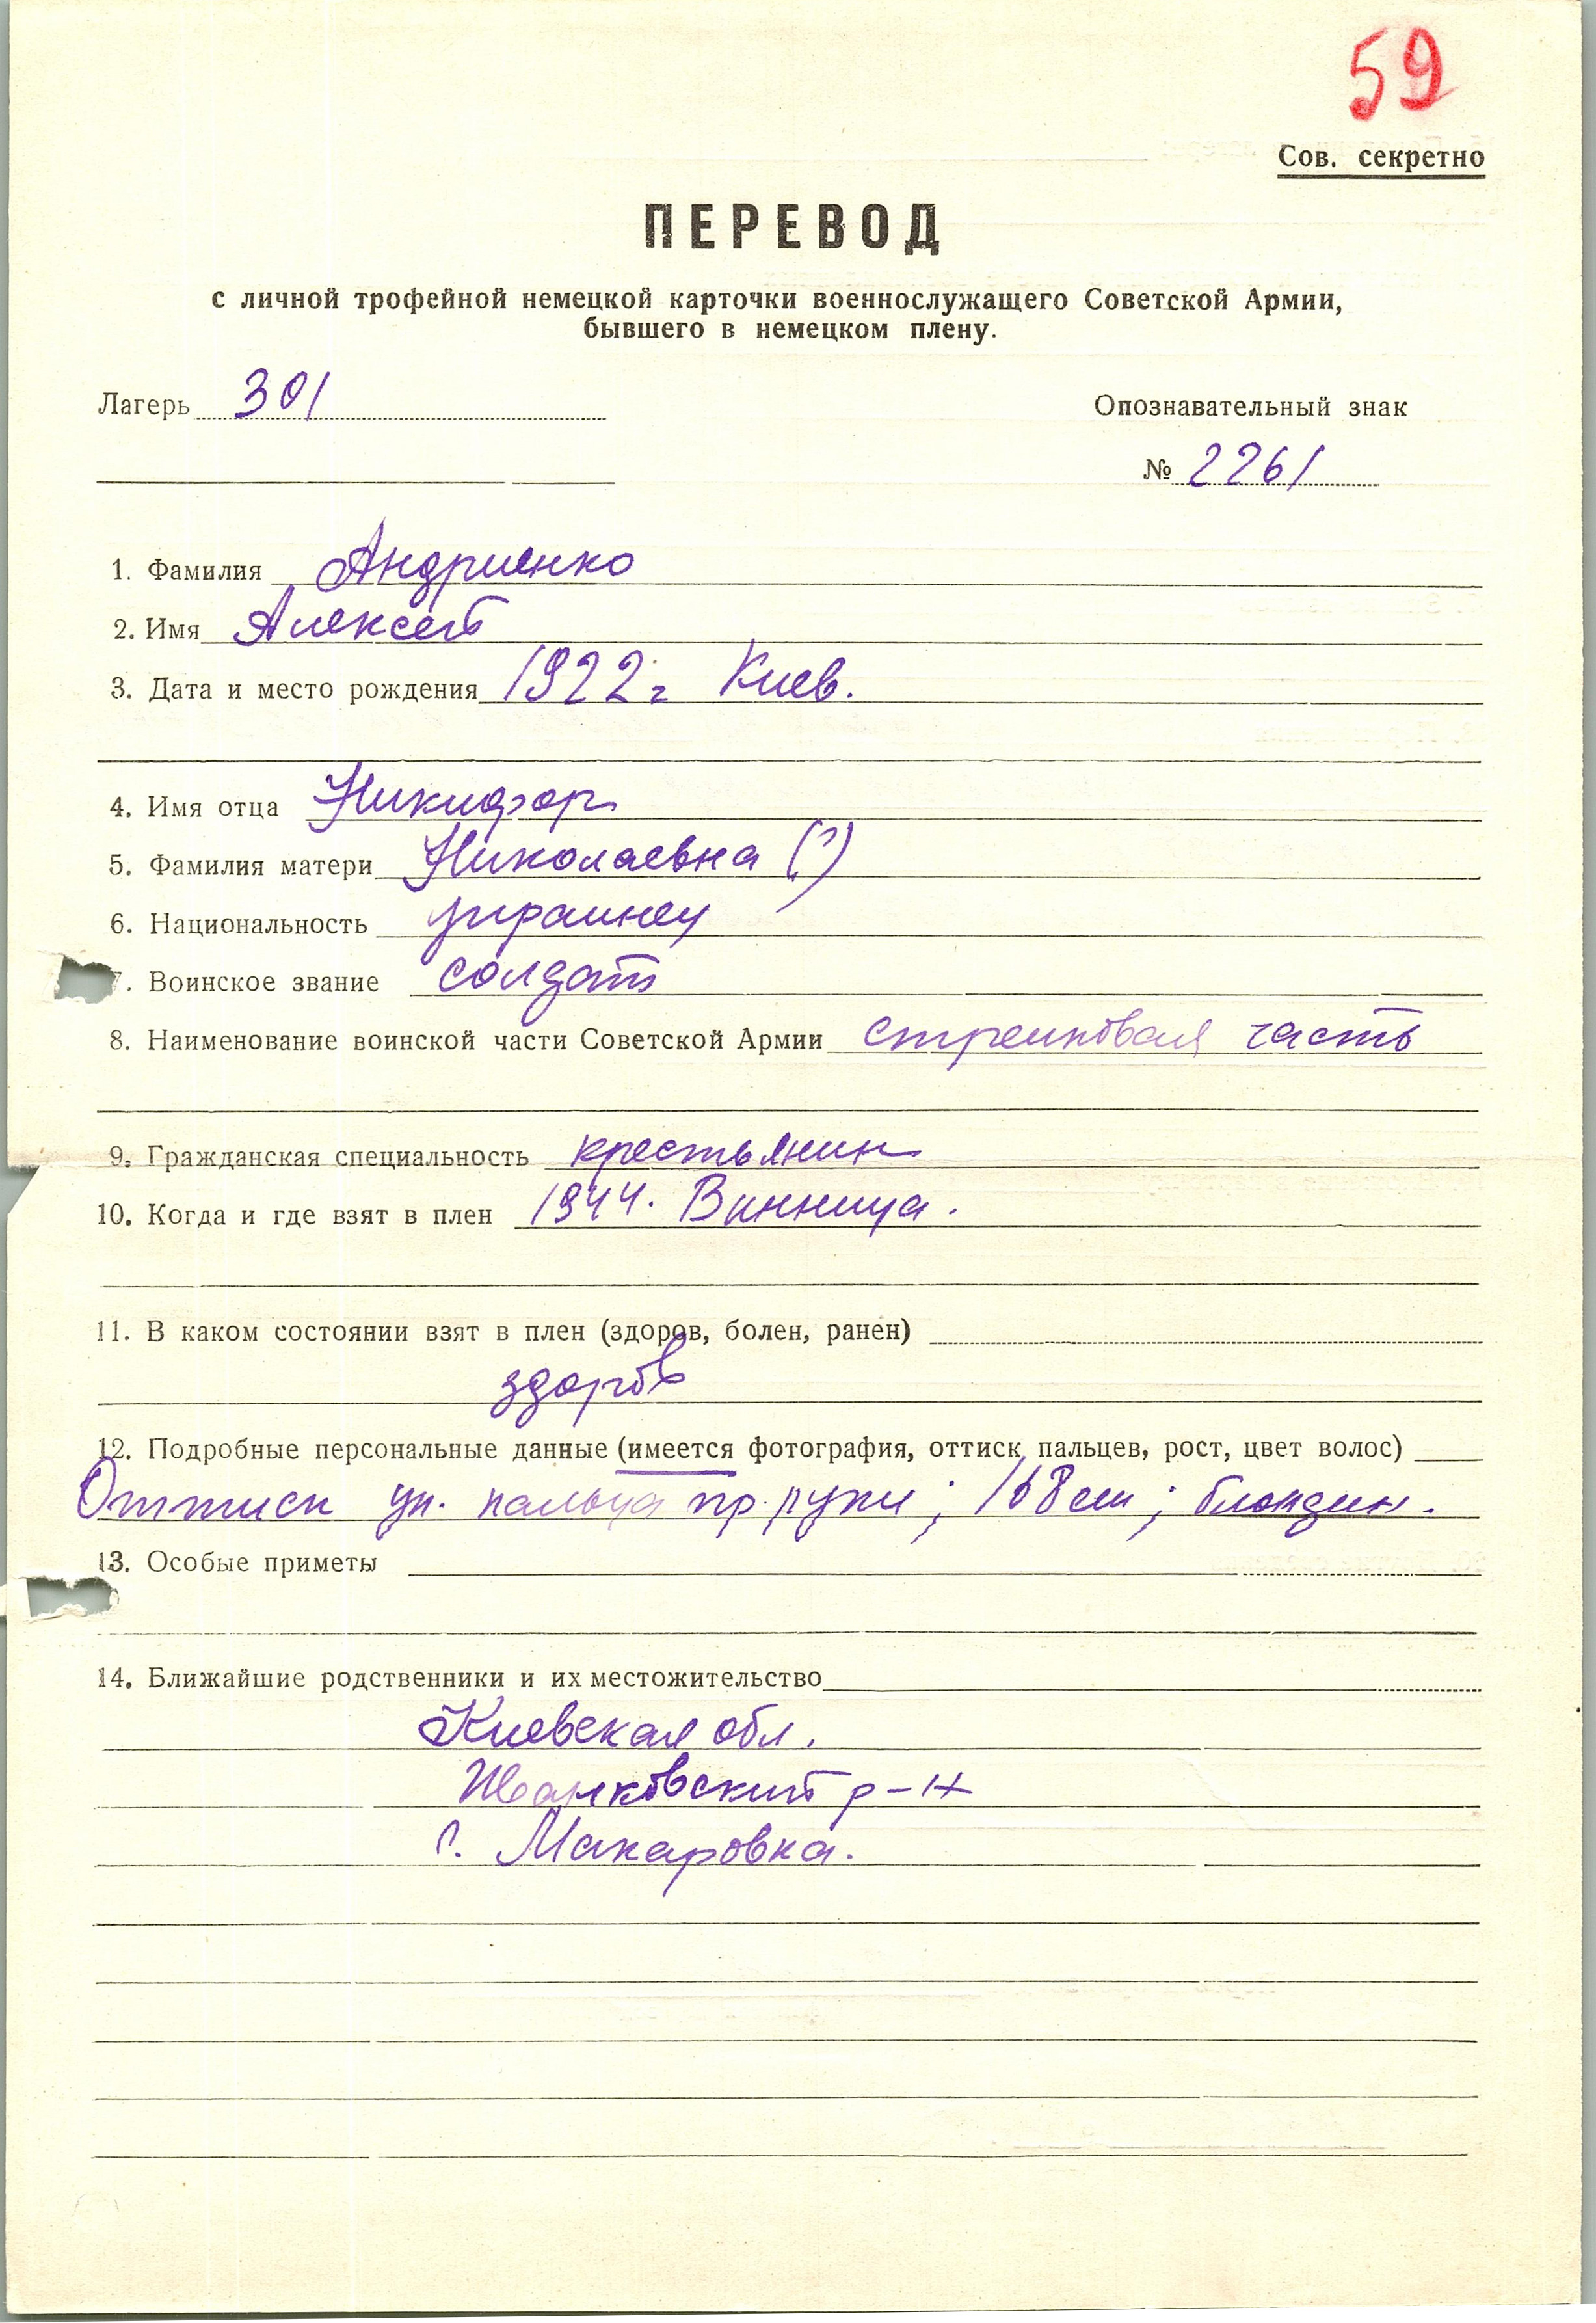 59
Сов. секретно
ПЕРЕВОД
с личной трофейной немецкой карточки военнослужащего Советской Армии,
бывшего в немецком плену.
Лагерь 301
Опознавательный знак
№ 2261
1. Фамилия Андриенко
2. Имя Алексей
3. Дата и место рождения 1922 г Киев.
4. Имя отца Никифор
5. Фамилия матери Николаевна (?)
6. Национальность украинец
7. Воинское звание солдат
8. Наименование воинской части Советской Армии стрелковая часть
9. Гражданская специальность крестьянин
10. Когда и где взят в плен 1944. Винница.
11. В каком состоянии взят в плен (здоров, болен, ранен)
здоров
12. Подробные персональные данные (имеется фотография, оттиск пальцев, рост, цвет волос)
Оттиск ук. пальца пр. руки; 168 см; блондин.
13. Особые приметы
14. Ближайшие родственники и их местожительство
Киевская обл.
р-н
г. Макаровка.